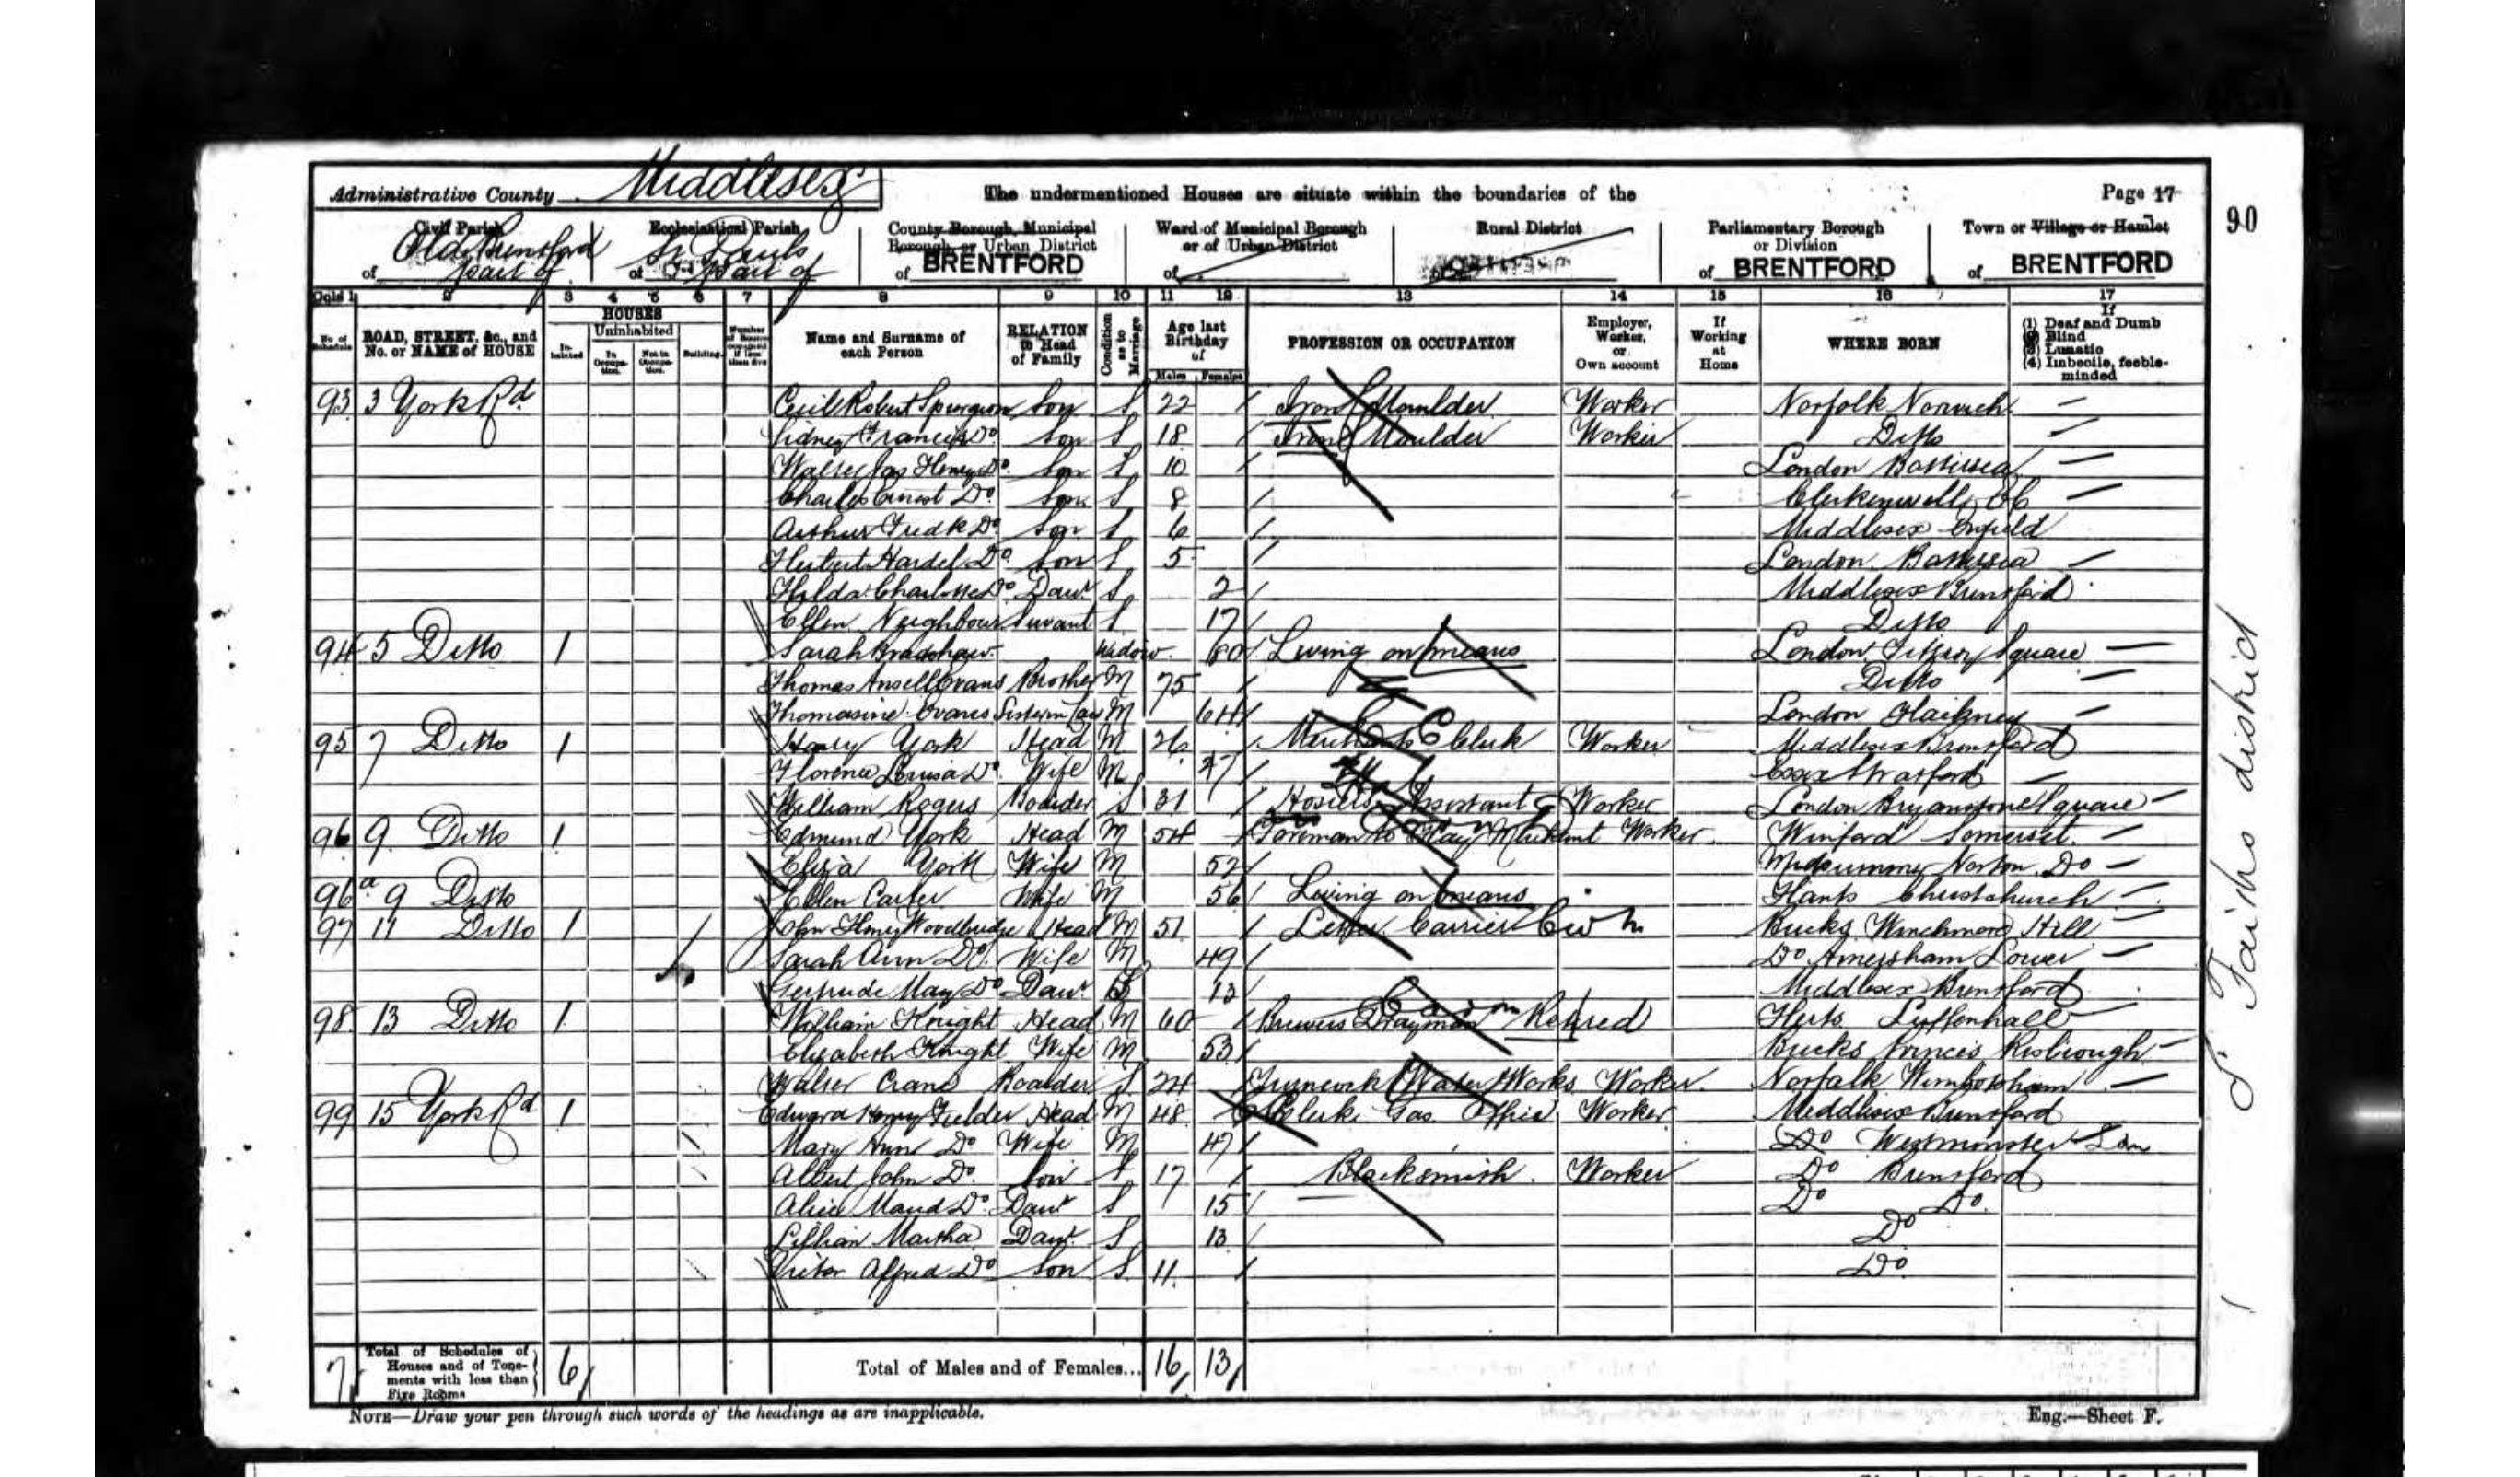 Administrative County Middlesex The undermentioned Houses are situate within the boundaries of the Page 17
90
Civil Parish Ecclesiastical Parish County Borough, Municipal Borough or Urban District Ward of Municipal Borough or of Urban District Rural District Parliamentary Borough or Division Town or Village or Hamlet
of Old Brentford part of of St Pauls part of of BRENTFORD of of of BRENTFORD of BRENTFORD
Cols 1 2 3 4 5 6 7 8 9 10 11 12 13 14 15 16 17
No. of Schedule ROAD, STREET, &c., and No. or NAME of HOUSE HOUSES Inhabited Uninhabited In Occupation. Not in Occupation. Building. Number of Rooms occupied if less than five Name and Surname of each Person RELATION to Head of Family Condition as to Marriage Age last Birthday of Males Females PROFESSION OR OCCUPATION Employer, Worker, or Own account If Working at Home WHERE BORN If (1) Deaf and Dumb (2) Blind (3) Lunatic (4) Imbecile, feeble-minded
93 3 York Rd Cecil Robert Spurgeon Son S 22 Iron Moulder Worker Norfolk Norwich
Sidney Francis Do Son S 18 Iron Moulder Worker Ditto
Walter Jas Henry Do Son S 10 London Battersea
Charles Ernest Do Son S 8 Clerkenwell EC
Arthur Fredk Do Son S 6 Middlesex Enfield
Herbert Hardel Do Son S 5 London Battersea
Hilda Charlotte Do Daur S 2 Middlesex Brentford
Ellen Neighbour Servant S 17 Ditto
94 5 Ditto 1 Sarah Bradshaw Widow 60 Living on means London Fitzroy Square
Thomas Ansell Evans Brother M 75 Ditto
Thomasine Evans Sister in Law M 64 London Hackney
95 7 Ditto 1 Harry York Head M 26 Clerk Worker Middlesex Brentford
Florence Louisa Do Wife M 27 Essex Stratford
William Rogers Boarder S 31 Hosiers Assistant Worker London Bryanstone Square
96 9 Ditto 1 Edmund York Head M 54 Foreman to Hay Merchant Worker Winford Somerset
Eliza York Wife M 52 Midsummer Norton Do
96a 9 Ditto Ellen Carter Wife M 56 Living on means Hants Christchurch
97 11 Ditto 1 John Henry Woodbridge Head M 51 Letter Carrier Bucks Winchmore Hill
Sarah Ann Do Wife M 49 Do Amersham Lower
Gertrude May Do Daur S 13 Middlesex Brentford
98 13 Ditto 1 William Knight Head M 60 Brewers Drayman Retired Herts Luffenhall
Elizabeth Knight Wife M 53 Bucks Princes Risborough
Walter Crane Boarder S 24 Turncock (Water Works Worker Norfolk Wimbotsham
99 15 York Rd 1 Edward Henry Fielder Head M 48 Clerk Gas Office Worker Middlesex Brentford
Mary Ann Do Wife M 47 Do Westminster Lon
Albert John Do Son S 17 Blacksmith Worker Do Brentford
Alice Maud Do Daur S 15 Do Do
Lillian Martha Daur S 13 Do
Victor Alfred Do Son S 11 Do
St Faiths district
7 Total of Schedules of Houses and of Tenements with less than Five Rooms 6 Total of Males and of Females... 16 13
NOTE—Draw your pen through such words of the headings as are inapplicable. Eng.—Sheet F.